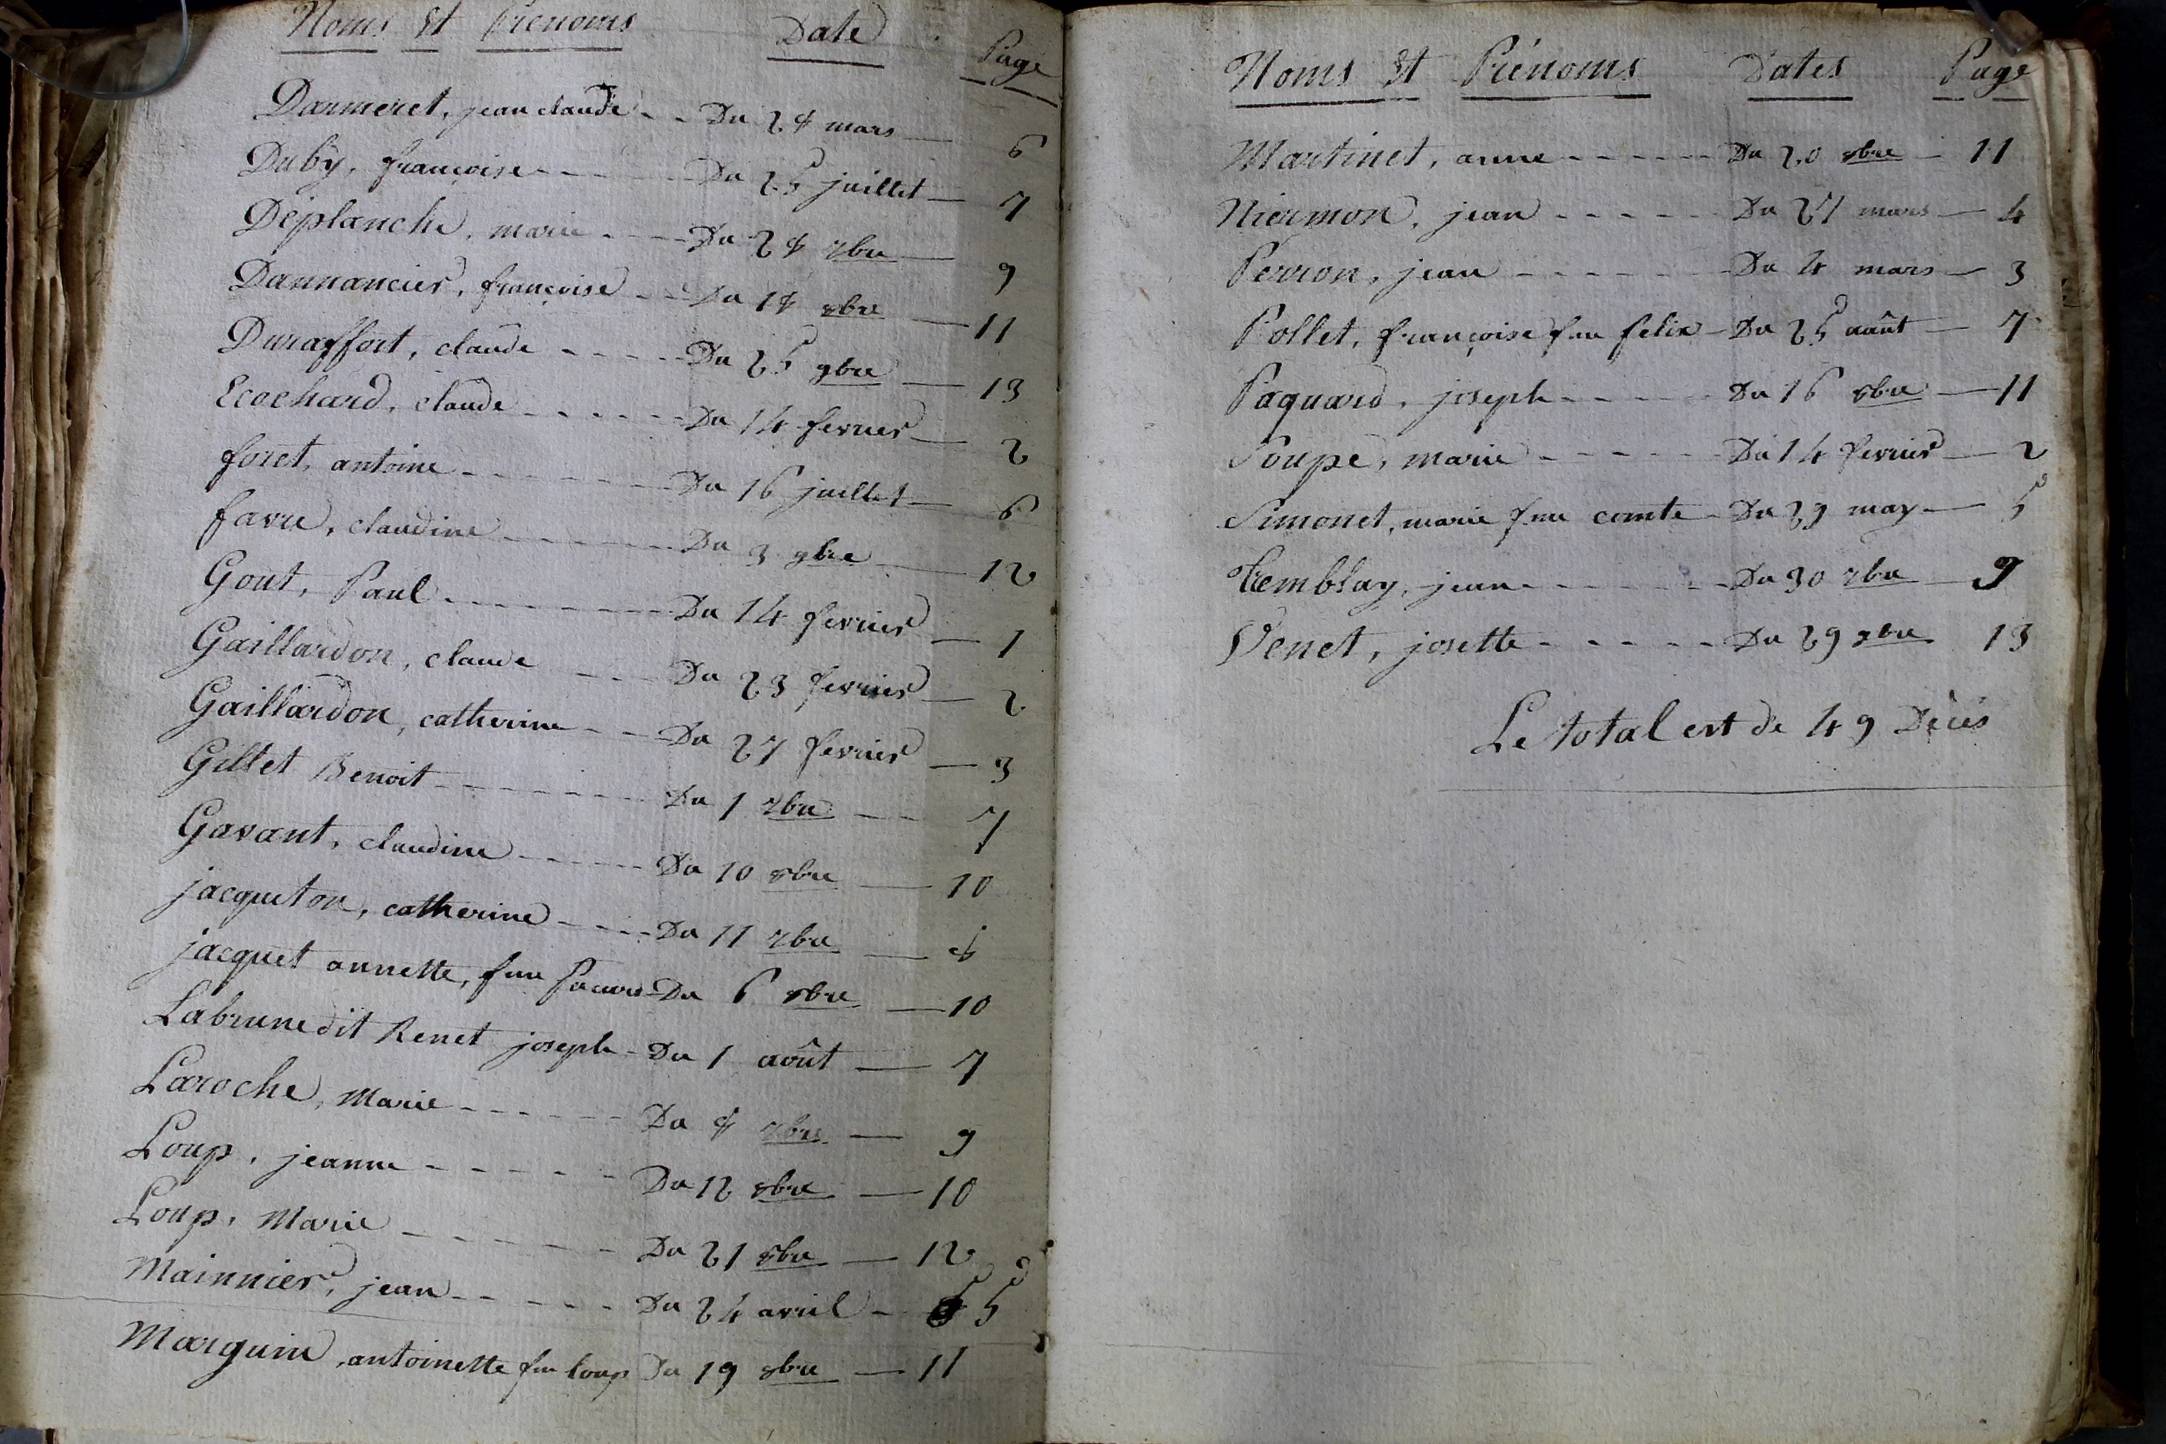 Noms Et Prénoms Date Page
Darmeret, jean claude Du 28 mars 6
Duby, françoise Du 25 juillet 7
Déplanche, marie Du 28 7bre 9
Dannancier, françoise Du 18 8bre 11
Duraffort, claude Du 25 9bre 13
Ecochard, claude Du 14 fevrier 2
foret, antoine Du 16 juillet 6
favre, claudine Du 3 9bre 12
Gout, Paul Du 14 fevrier 1
Gaillardon, claude Du 23 fevrier 2
Gaillardon, catherine Du 27 fevrier 3
Gillet Benoit Du 1 7bre 7
Gavant, claudine Du 10 8bre 10
jacqueton, catherine Du 11 7bre 8
jacquet annette, fme Du 6 8bre 10
Labrune dit Renet joseph Du 1 août 7
Laroche, Marie Du 8 7bre 9
Loup, jeanne Du 12 8bre 10
Loup, Marie Du 21 8bre 12
Mainnier, jean Du 24 avril 5
Marguin, antoinette fme loup Du 19 8bre 11
Noms Et Prénoms Dates Page
Martinet, anne Du 20 8bre 11
Niermon, jean Du 27 mars 4
Perron, jean Du 4 mars 3
Pollet, françoise fme felix Du 25 août 7
Paquard, joseph Du 16 8bre 11
Poupe, marie Du 14 fevrier 2
Simonet, marie fme comte Du 29 may 5
Tremblay, jean Du 30 7bre 9
Venet, josette Du 29 9bre 13
Le total est de 49 Décès